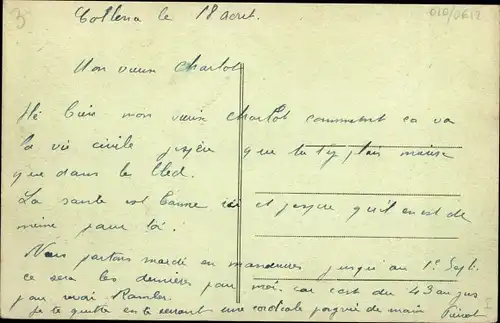 le 18 aout.
010/0612
Mon vieux Charlot
Hé bien mon vieux Charlot comment ça va
la vie civile j'espère que tu t'y plais mieux
que dans le bled.
La sante est bonne ici et j'espere qu'il en est de
même pour toi.
Nous partons mardi en manœuvres jusqu'au 1er Sept.
ce sera les dernières pour moi. car c'est du 43 au jus
pour revoir
je te quitte en te serrant une cordiale poignée de main